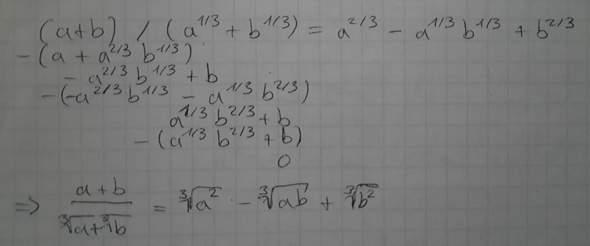 (a+b) / (a^{1/3} + b^{1/3}) = a^{2/3} - a^{1/3} b^{1/3} + b^{2/3}
-(a + a^{2/3} b^{1/3})
- a^{2/3} b^{1/3} + b
-(-a^{2/3} b^{1/3} - a^{1/3} b^{2/3})
a^{1/3} b^{2/3} + b
-(a^{1/3} b^{2/3} + b)
0
⇒ \frac{a+b}{\sqrt[3]{a}+\sqrt[3]{b}} = \sqrt[3]{a^2} - \sqrt[3]{ab} + \sqrt[3]{b^2}